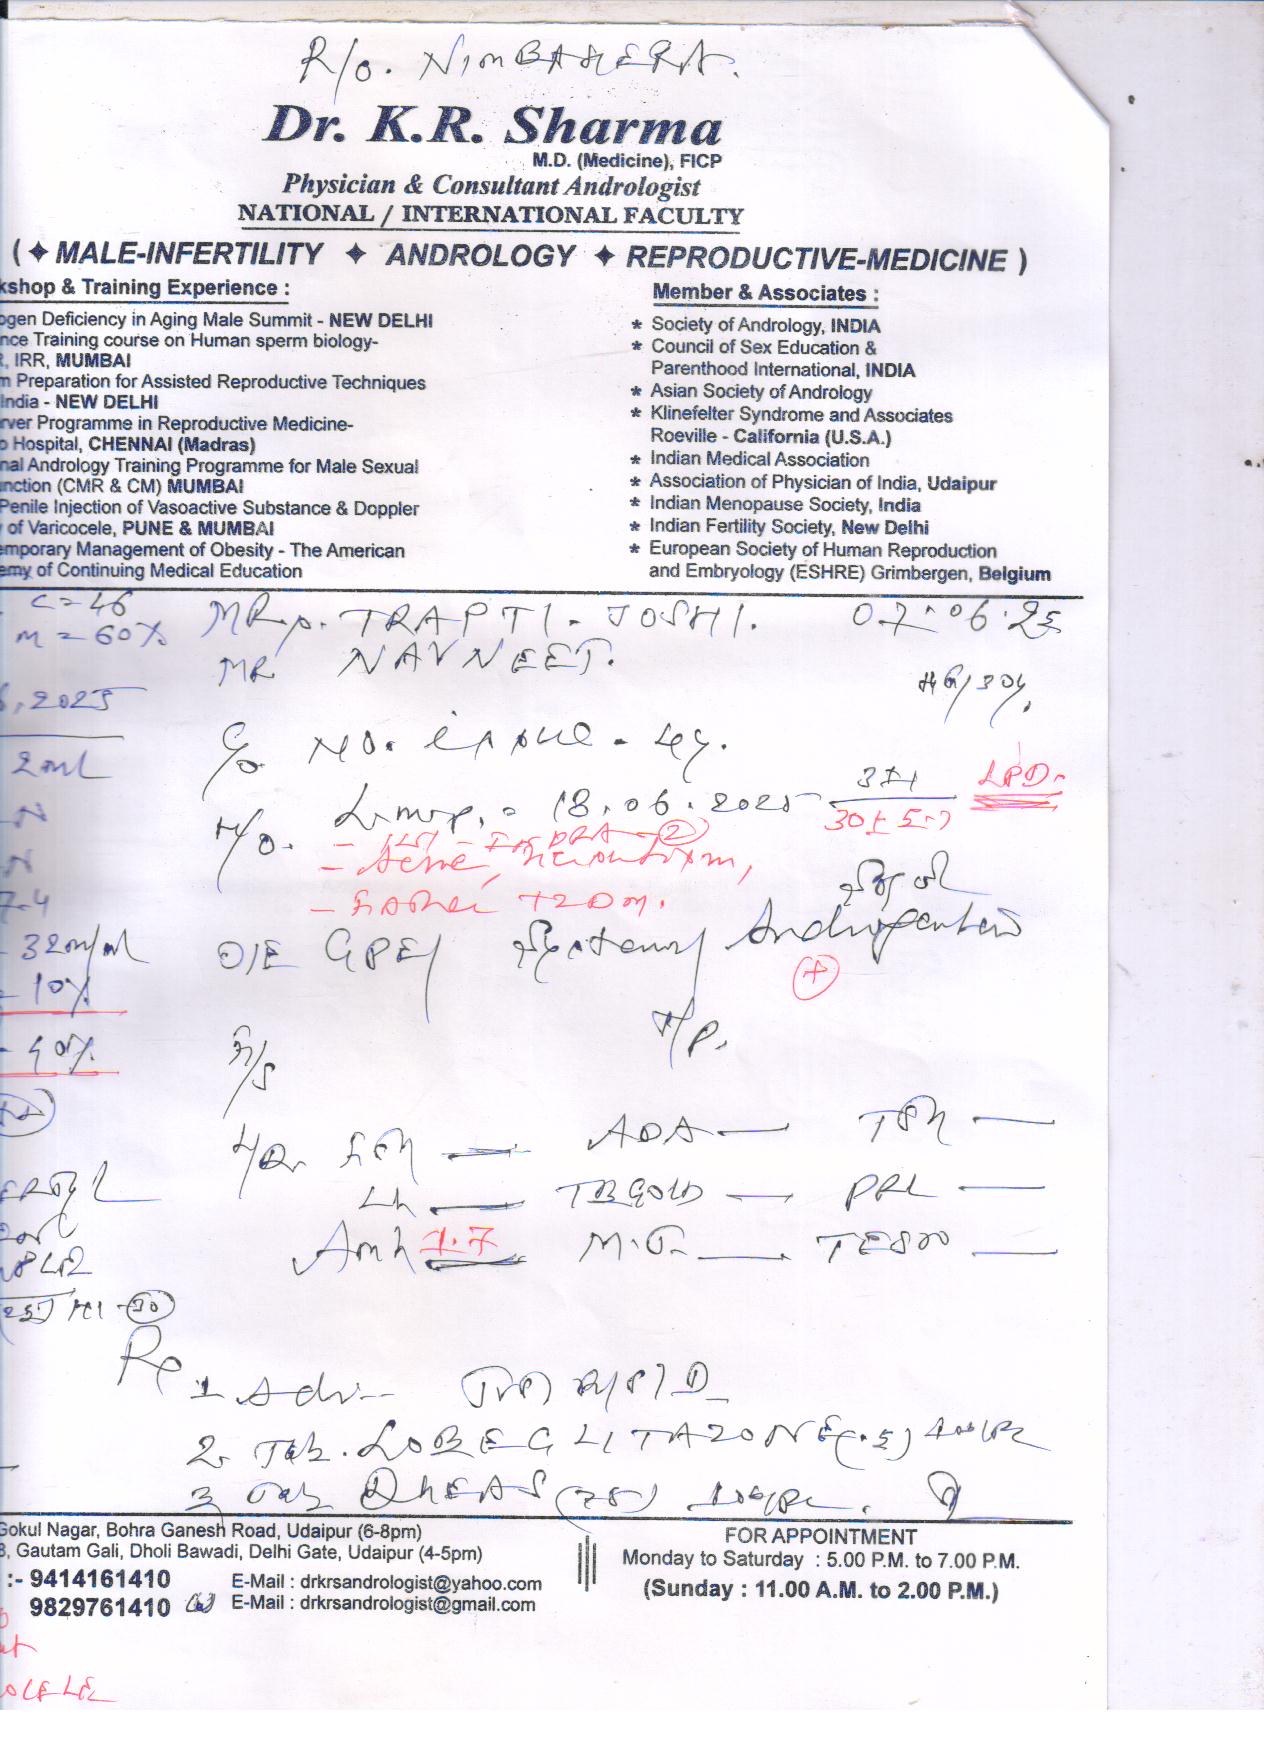 R/o. NIMBAHERA.
Dr. K.R. Sharma
M.D. (Medicine), FICP
Physician & Consultant Andrologist
NATIONAL / INTERNATIONAL FACULTY
( ✦ MALE-INFERTILITY ✦ ANDROLOGY ✦ REPRODUCTIVE-MEDICINE )
kshop & Training Experience :
ogen Deficiency in Aging Male Summit - NEW DELHI
nce Training course on Human sperm biology-
, IRR, MUMBAI
n Preparation for Assisted Reproductive Techniques
India - NEW DELHI
rver Programme in Reproductive Medicine-
o Hospital, CHENNAI (Madras)
nal Andrology Training Programme for Male Sexual
unction (CMR & CM) MUMBAI
Penile Injection of Vasoactive Substance & Doppler
of Varicocele, PUNE & MUMBAI
emporary Management of Obesity - The American
emy of Continuing Medical Education
Member & Associates :
* Society of Andrology, INDIA
* Council of Sex Education &
Parenthood International, INDIA
* Asian Society of Andrology
* Klinefelter Syndrome and Associates
Roeville - California (U.S.A.)
* Indian Medical Association
* Association of Physician of India, Udaipur
* Indian Menopause Society, India
* Indian Fertility Society, New Delhi
* European Society of Human Reproduction
and Embryology (ESHRE) Grimbergen, Belgium
c = 46
m = 60%
, 2025
2ml
N
N
7.4
32m/ml
- 10%
- 40%
MRs. TRAPTI. JOSHI. 07.06.25
MR NAVNEET.
c/o No. issue - 4y.
H/o. L.m.p. = 18.06.2025 LPD.
30±5
O/E GPE/
(+)
P/S
H/o. FSH — AOA — TSH —
LH — TBGOLD — PRL —
Amh 1.7 M.G. — TESTO —
Rx 1 Adv -
2. Tab. LOBEGLITAZONE (.5)
3 Tab DHEAS (75)
Gokul Nagar, Bohra Ganesh Road, Udaipur (6-8pm)
, Gautam Gali, Dholi Bawadi, Delhi Gate, Udaipur (4-5pm)
:- 9414161410 E-Mail : drkrsandrologist@yahoo.com
9829761410 E-Mail : drkrsandrologist@gmail.com
FOR APPOINTMENT
Monday to Saturday : 5.00 P.M. to 7.00 P.M.
(Sunday : 11.00 A.M. to 2.00 P.M.)